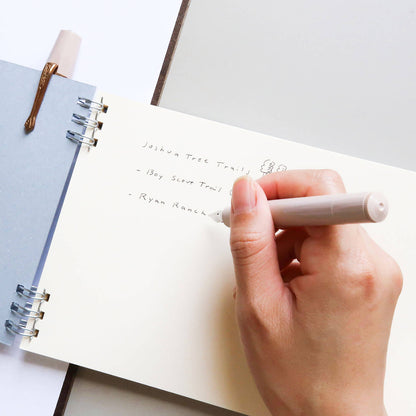 Joshua Tree Trails
- Boy Scout Trail
- Ryan Ranch